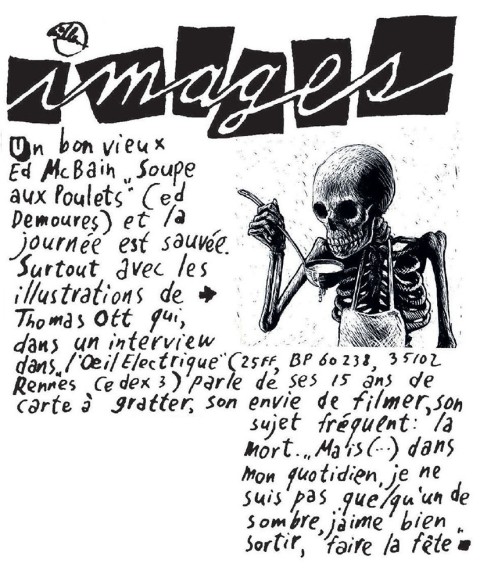 images
Un bon vieux
Ed McBain „Soupe
aux Poulets" (ed
Demoures) et la
journée est sauvée.
Surtout avec les
illustrations de ➔
Thomas Ott qui,
dans un interview
dans „l'Œil Electrique" (25FF, BP 60238, 35102
Rennes Cedex 3) parle de ses 15 ans de
carte à gratter, son envie de filmer, son
sujet fréquent: la
mort. „Mais (...) dans
mon quotidien, je ne
suis pas quelqu'un de
sombre, j'aime bien
sortir, faire la fête"